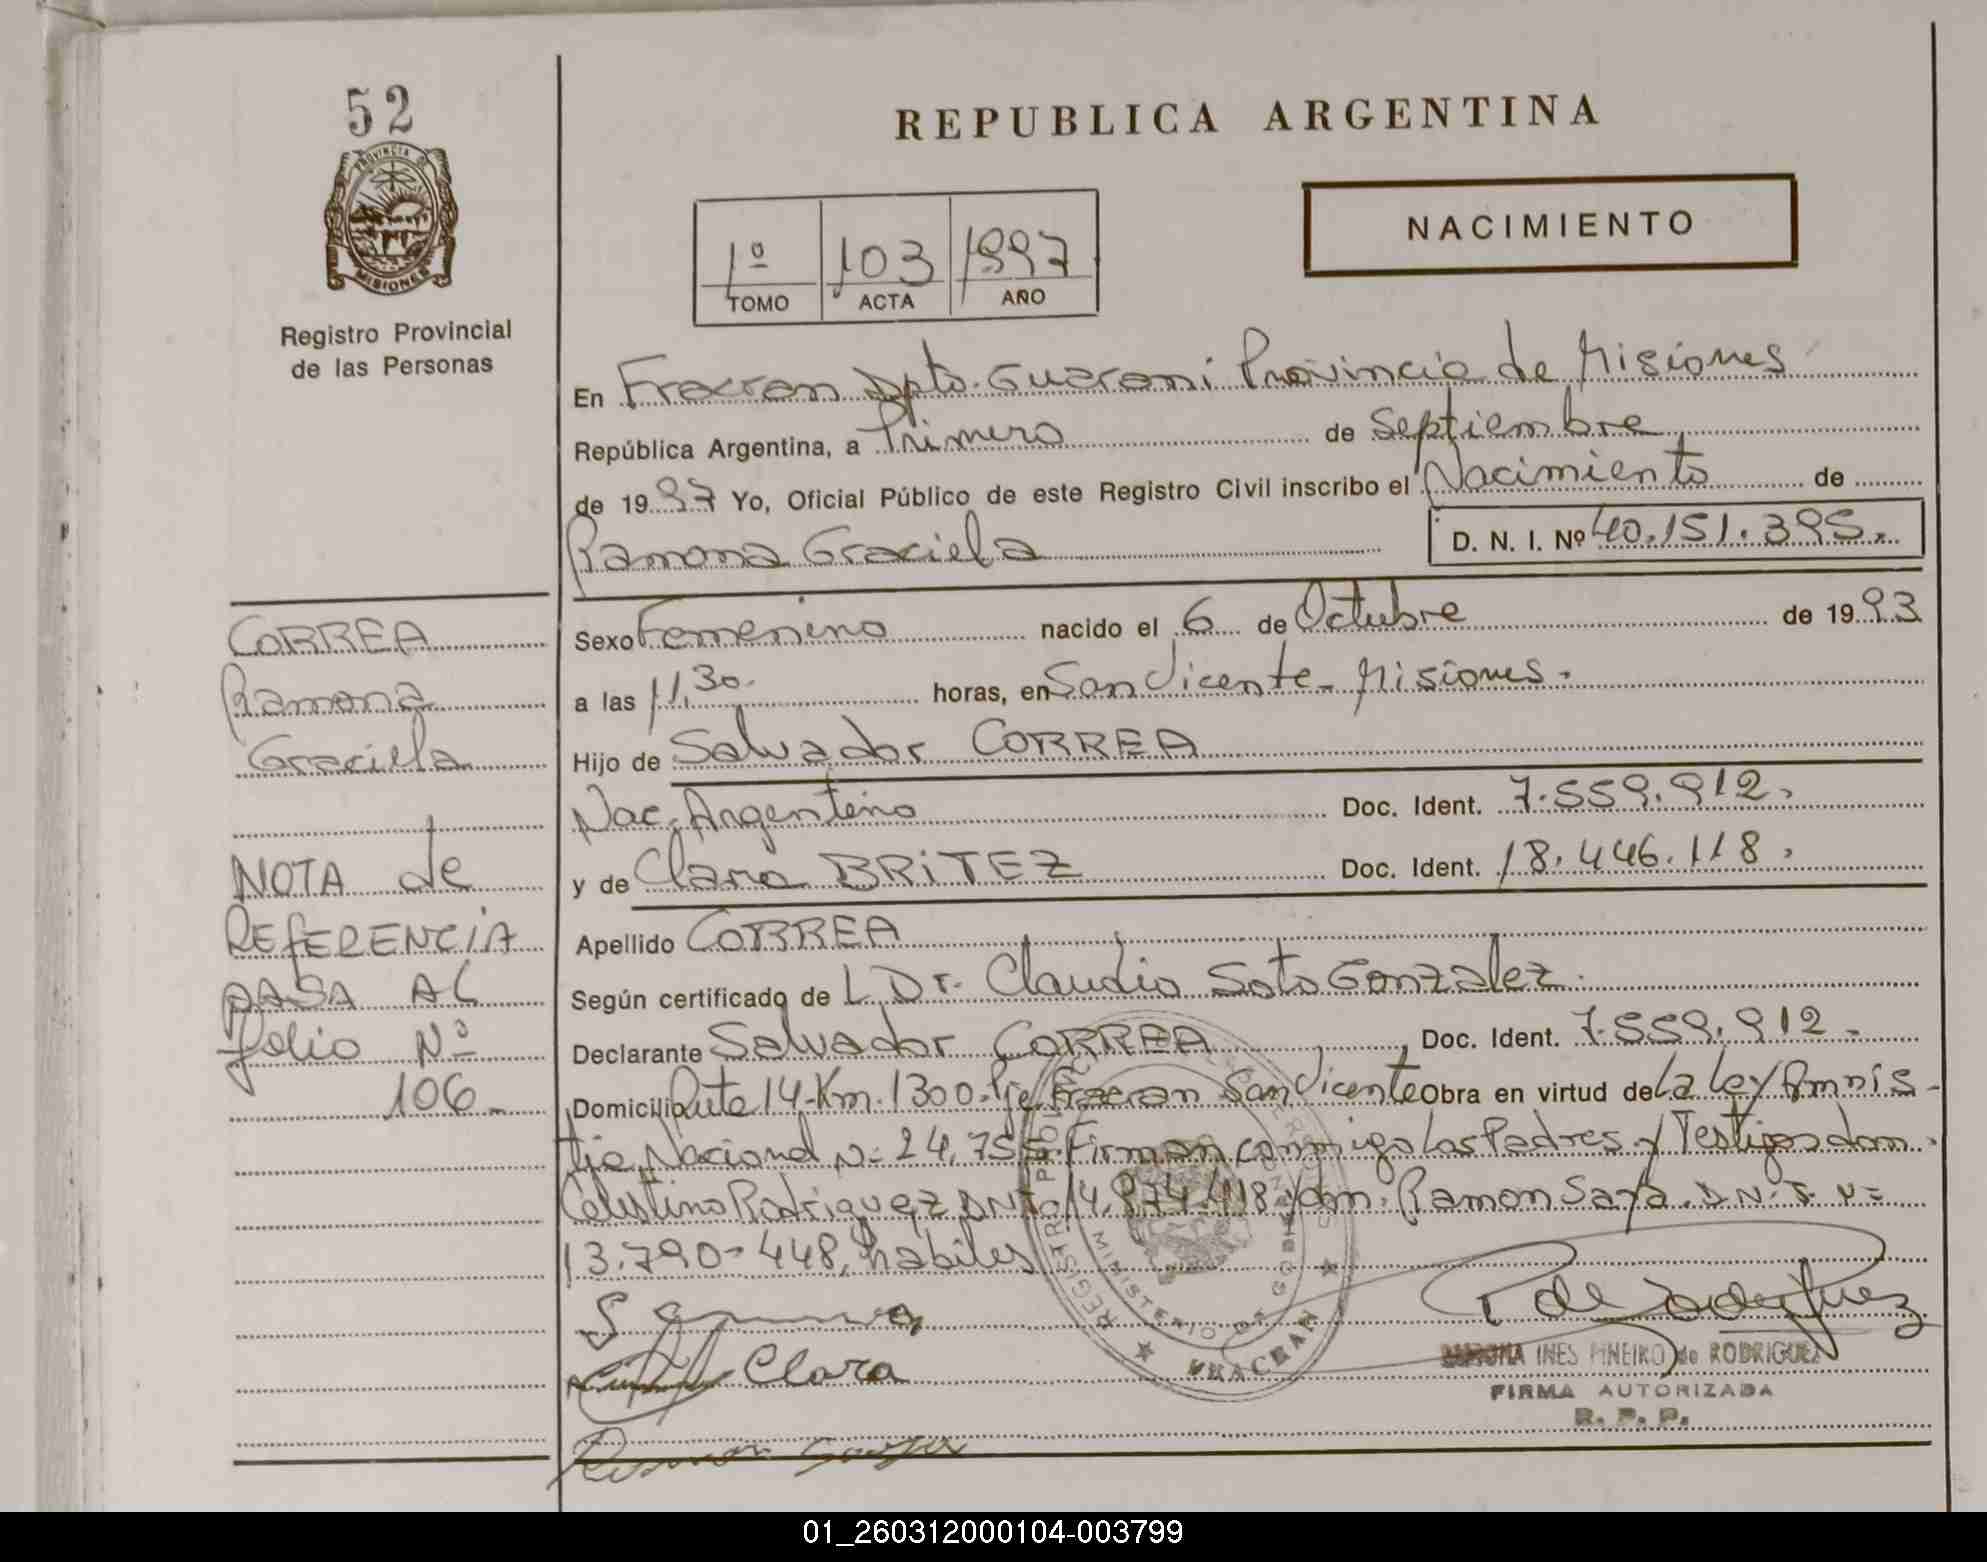 52
PROVINCIA DE
MISIONES
Registro Provincial
de las Personas
REPUBLICA ARGENTINA
NACIMIENTO
1º 103 1997
TOMO ACTA AÑO
En Fracran Dpto. Guarani Provincia de Misiones
República Argentina, a Primero de Septiembre
de 1997 Yo, Oficial Público de este Registro Civil inscribo el Nacimiento de
Ramona Graciela D. N. I. Nº 40.151.395.
Sexo Femenino nacido el 6 de Octubre de 1993
a las 11,30. horas, en San Vicente - Misiones.
Hijo de Salvador CORREA
Nac. Argentino Doc. Ident. 7.559.912.
y de Clara BRITEZ Doc. Ident. 18.446.118.
Apellido CORREA
Según certificado de L Dr. Claudio Soto Gonzalez.
Declarante Salvador CORREA, Doc. Ident. 7.559.912.
Domicilio Ruta 14-Km.1300-Pje Fracran San Vicente Obra en virtud de La Ley Amnis-
tia Nacional N= 24.755. Firman conmigo Los Padres y Testigos don.
Celestino Rodriguez DNI 14.974.418 y don. Ramon Saya. D.N.I. N=
13.790-448, habiles
CORREA
Ramona
Graciela
NOTA de
REFERENCIA
PASA AL
folio Nº
106-
Clara
P de Rodriguez
INES PIÑEIRO de RODRIGUEZ
FIRMA AUTORIZADA
R. P. P.
MINISTERIO DE GOBIERNO
FRACRAN
01_260312000104-003799